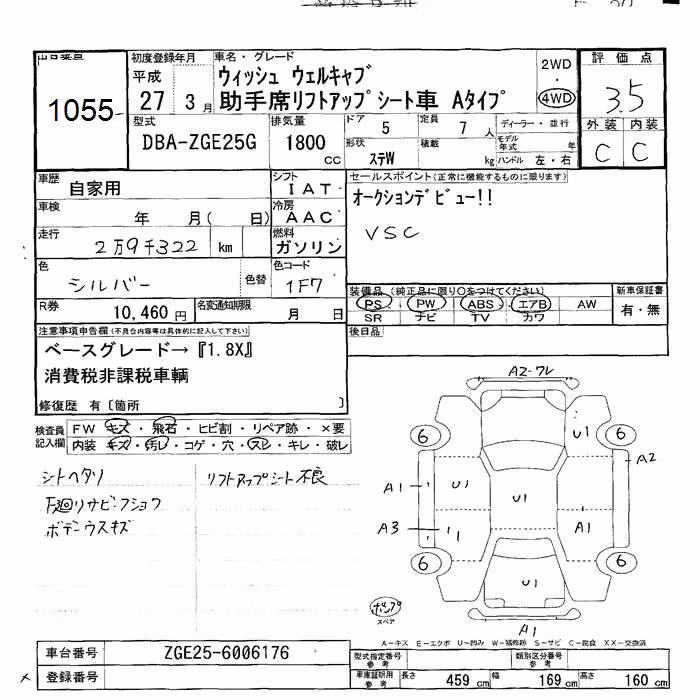 初度登録年月 車名・グレード 評価点
1055 平成 27 3月 ウィッシュ ウェルキャブ 2WD 3.5
助手席リフトアップシート車 Aタイプ 4WD
型式 排気量 ドア 5 定員 7人 ディーラー・並行 外装 内装
DBA-ZGE25G 1800 cc 形状 ステW 積載 kg モデル年式 年 C C
ハンドル 左・右
車歴 自家用 シフト IAT セールスポイント(正常に機能するものに限ります)
車検 年 月( 日) 冷房 AAC オークションデビュー!!
走行 2万9千322 km 燃料 ガソリン VSC
色 シルバー 色替 色コード 1F7
装備品(純正品に限り○をつけてください) 新車保証書
R券 10,460円 名変通知期限 月 日 PS PW ABS エアB AW 有・無
SR ナビ TV カワ
注意事項申告欄(不具合内容等は具体的に記入して下さい) 後日品
ベースグレード→『1.8X』
消費税非課税車輌
修復歴 有〔箇所 〕
検査員記入欄 FW キズ・飛石・ヒビ割・リペア跡・×要
内装 キズ・汚レ・コゲ・穴・スレ・キレ・破レ
シートヘタリ リフトアップシート不良
下廻りサビ・フショク
ボデーウスキズ
A2-ワレ
6 U1 6
A2
A1 U1 U1
A3 A1
6 6
U1
スペア
A1
A-キズ E-エクボ U-凹み W-補修跡 S-サビ C-腐食 XX-交換済
車台番号 ZGE25-6006176 型式指定番号 参考 類別区分番号 参考
登録番号 車庫証明用 参考 長さ 459cm 幅 169cm 高さ 160cm